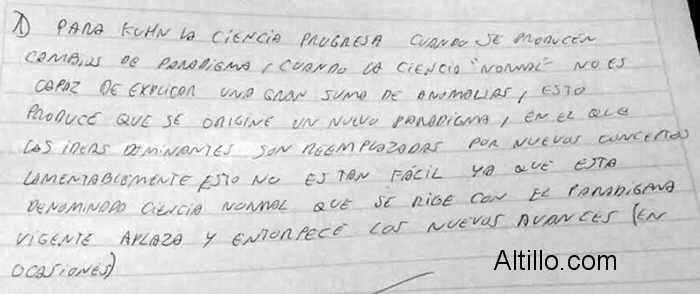 1) PARA KUHN LA CIENCIA PROGRESA CUANDO SE PRODUCEN
CAMBIOS DE PARADIGMA, CUANDO LA CIENCIA "NORMAL" NO ES
CAPAZ DE EXPLICAR UNA GRAN SUMA DE ANOMALIAS, ESTO
PRODUCE QUE SE ORIGINE UN NUEVO PARADIGMA, EN EL QUE
LAS IDEAS DOMINANTES SON REEMPLAZADAS POR NUEVOS CONCEPTOS
LAMENTABLEMENTE ESTO NO ES TAN FÁCIL YA QUE ESTA
DENOMINADA CIENCIA NORMAL QUE SE RIGE CON EL PARADIGMA
VIGENTE APLAZA Y ENTORPECE LOS NUEVOS AVANCES (EN
OCASIONES)
Altillo.com